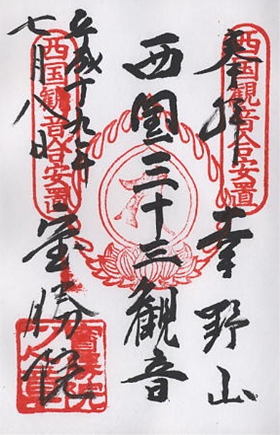 奉拝 幸野山
西国三十三観音
宝勝院
平成十九年
七月八日
西国観音合安置
西国観音合安置